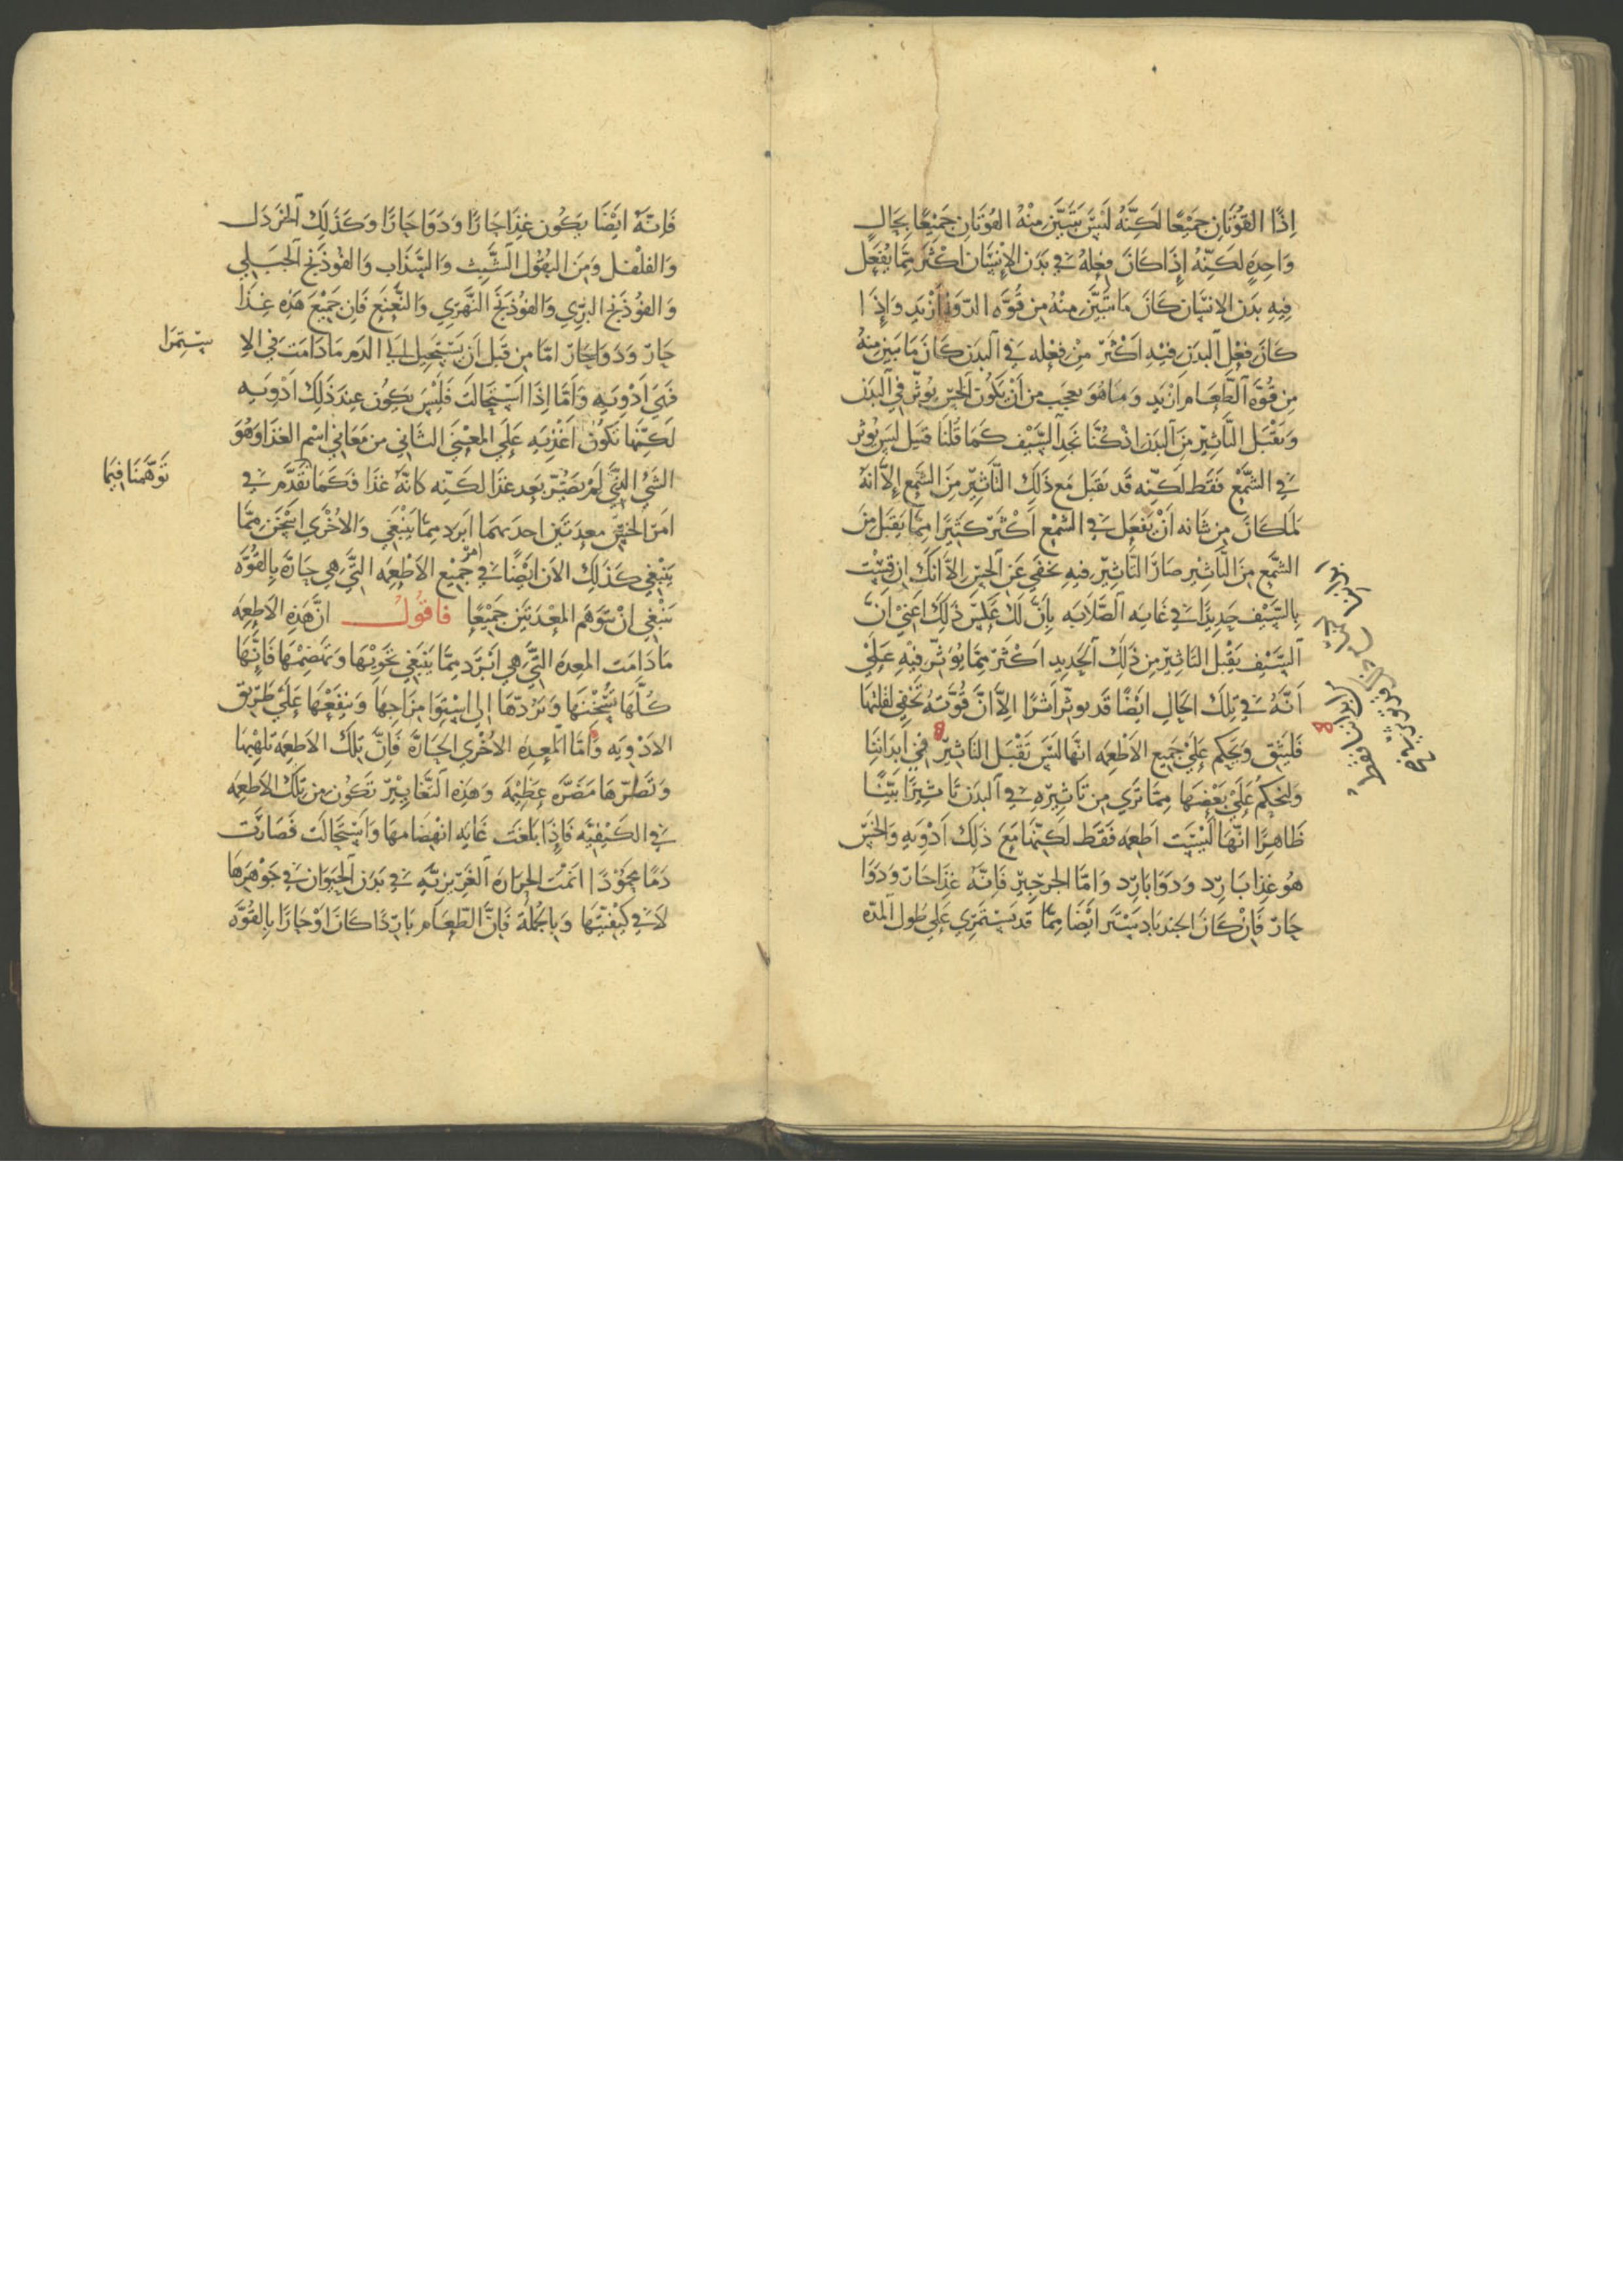 اِذًا القُوَّتَانِ جَمِيْعًا لَكِنَّهُ لَيْسَ يَتَبَيَّن مِنْهُ القُوَتَانِ جَمِيْعًا بِحَالٍ
وَاحِدٍ لَكِنّهُ إِذَا كَانَ فِعْلهُ فِي بَدَنِ الاِنْسَان اكْثَرَ مِمَّا يَفْعَل
فِيهِ بَدَن الاِنسَان كَانَ مَا يَتَبَيَّن مِنْهُ مِن قُوَّه الدّوَا اَزْيَدِ وَاِذَا
كَانَ فِعْل البَدَن فِيْهِ اَكْثَرَ مِنْ فِعْلِه فِي البَدَن كَانَ مَا يَبِين مِنْهُ
مِن قُوَّه الطَّعَام اَزْيَد وَمَا هُوَ بِعَجَب مِن اَنْ يَكُوْن الخَسّ يُوثّر فِي البَدَن
وَيَقْبَل التَّاثِيْر مِنَ البَدَن اذ كُنَّا نَجِد السَّيْف كَمَا قُلنَا قَبَل لَيسَ يُوثر
فِي الشَّمْع فَقَط لَكِنّه قَد يَقبَل مَع ذَلِكَ التَّاثِيْر مِنَ الشَمع اِلَّا انَهُ
لمَا كَانَ مِن شَانه اَنْ يَفْعَل فِي الشَمْع اَكْثَر كَثِيْرًا مِمَّا يَقبَل مِنَ
الشَّمَع مِنَ التَّاثِيْر صَارَ التَّاثِيْر فِيهِ يَخفَي عَن الحِسّ اِلّا اَنَكَ ان قسْت
بِالسَّيْف حَدِيْدًا فِي غَايَه الصَّلابَه بَانَ لَكَ عَكس ذَلِكَ اعَنِي اَنَّ
السَّيْف يَقْبَل التَاثِيْر مِن ذَلِكَ الحَدِيد اَكثَر مِمَّا يُوَثّر فِيْهِ عَلَيْ
اَنَّهُ فِي تِلكَ الحَالِ ايْضًا قَد يوثّر اَثَرًا اِلَّا انَّ قُوَّته تَخْفَي لقلتهَا
فَليَثِق وَيَحكم عَلَيْ جَمِيع الاَطْعِمَه انهَا لَيْسَ تَقْبَل التَاثِيْر فِي اَبدَانِنَا
وليَحكُم عَلَيْ بَعْضِهَا مِمَّا تَرَي مِن تَاثِيْرِهِ فِي البَدَن تَاثِيْرًا بَيِّنًا
ظَاهِرًا انّهَا لَيْسَت اطعِمَه فَقَط لَكِنّهَا مَعَ ذَلِكَ اَدْوِيَه وَالخَسّ
هُو غِذَا بَارِد وَدَوَا بَارِد وَامَّا الجرجِيْر فَاِنَّهُ غِذَا حَارّ وَدَوَا
حَارّ فَاِنْ كَانَ الجندبَادسْتَر ايْضًا مِمَّا قد يَسْتَمرِي عَلَي طُول المُدّه
ابداننا فقط
فَاِنَّهُ ايْضًا يَكُون غِذَا حَارًا وَدَوَا حَارًا وَكَذَلِكَ الخَردَل
وَالفلْفل وَمِنَ البقُول الشّبِث وَالسَّذَاب وَالفُوذَنج الجَبَلي
وَالفُوذَنج البَرّي وَالفُوذَنج النَّهرِي وَالنَّعْنَع فَاِن جَمِيْعَ هَذِه غِذَا
حَارّ وَدَوَا حَارّ امَّا مِن قَبل اَن يَسْتَحِيل اِلَي الدَم مَا دَامَت فِي الاِ
سْتِمرَا
فَهِيَ اَدْوِيَه وَاَمَّا اِذَا اسْتَحَالَت فَليْسَ يَكُون عِندَ ذَلِكَ اَدْوِيَه
لَكِنّهَا تَكُوْن اَغْذِيَه عَلَي المعْنَي الثَانِي مِن مَعَاني اسْم الغذَا وَهُوَ
الشَي الذِي لَمْ يَصِيْر بَعد غِذَا لَكِنّه كَانَهُ غذَا فَكَمَا تَقَدَّم فِي
تَوَهَّمنَا فِيمَا
امَر الخَسّ مِعدَتَيْن احدَيهمَا اَبرَد مِمّا يَنْبَغِي وَالاُخْرَي اسْخَن مِمَّا
يَنْبَغِي كَذَلِكَ الاَن اَيْضًا فِي امر جَمِيْع الاَطْعِمَه التِي هِي حَارّه بِالقُوَّه
يَنْبَغِي ان نَتَوَهّم المعْدَتَيْن جَمِيْعًا فاقول انَّ هَذِهِ الاَطعِمَه
مَا دَامَت المعِدَه التِي هِي اَبْرَد مِمَّا يَنْبَغِي تَحْوِيْهَا وَتَهضِمْهَا فَاِنّهَا
كُلّهَا تُسْخّنهَا وَتَرُدّهَا اِلي اسْتِوَا مِزَاجِهَا وَتنفَعهَا عَلَي طَرِيق
الاَدْوِيَه وَامَّا المعِدَه الاُخْري الحَارَّه فَاِنَّ تِلكَ الاَطعِمَه تلهِبهَا
وَتَضُرّهَا مَضَرَّه عَظِيْمَه وَهَذِه التَّغَايِيْر تَكُون مِن تِلكَ الاَطعِمَه
فِي الكَيْفِيّه فَاِذَا بَلَغَت غَايَه انْهِضَامهَا وَاسْتَحَالَت فَصَارَت
دَمًا مَحمُوْدًا انمَت الحرَارَه الغَرِيزيّه فِي بَدَن الحَيَوَان فِي جَوْهَرِهَا
لَا فِي كَيْفِيَّتِهَا وَبِالجُملَه فَاِنَّ الطَّعَام بَارِدًا كَانَ اَوْ حَارًا بِالقُوَّه